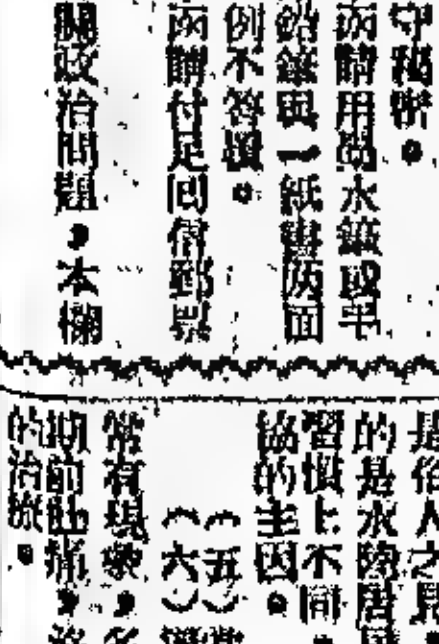 守秘密。
函請用墨水鋼或平
鉛筆與一紙書两面
例不答覆。
函請付足囘信郵票
關政治問題，本欄
是俗人之見
的是水陸居
習慣上不同
協的主因。
（五）
（六）
常有現象，
期前肚痛，
的治療。